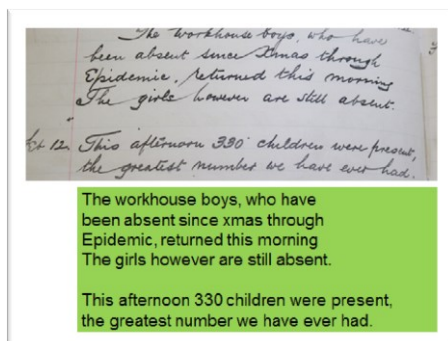 The workhouse boys, who have
been absent since Xmas through
Epidemic, returned this morning
The girls however are still absent.
12th This afternoon 330 children were present,
the greatest number we have ever had.
The workhouse boys, who have
been absent since xmas through
Epidemic, returned this morning
The girls however are still absent.
This afternoon 330 children were present,
the greatest number we have ever had.